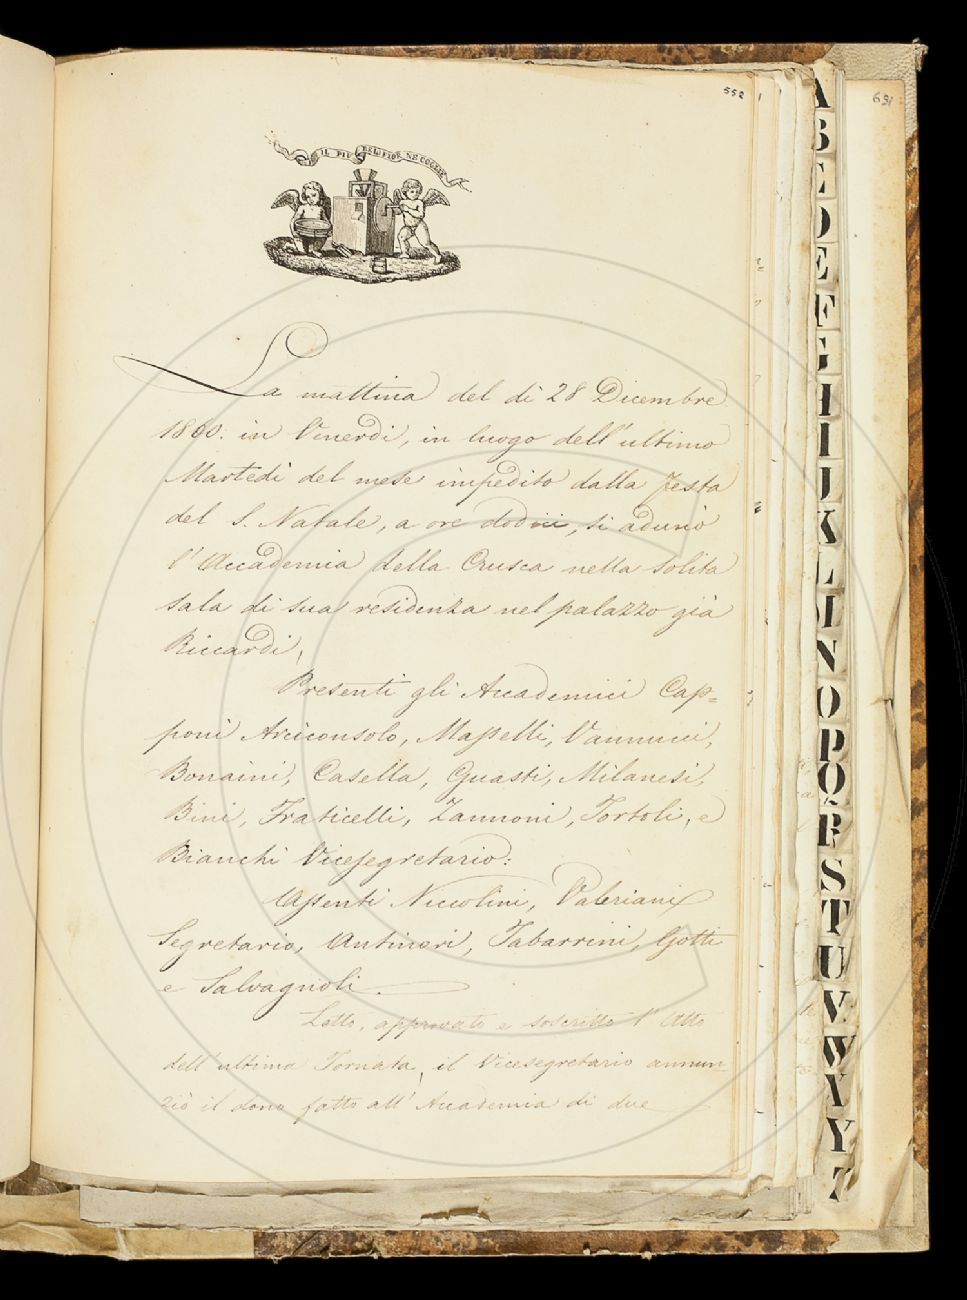 552
691
IL PIÙ BEL FIOR NE COGLIE
La mattina del dì 28 Dicembre
1860. in Venerdì, in luogo dell'ultimo
Martedì del mese impedito dalla festa
del S. Natale, a ore dodici, si adunò
l'Accademia della Crusca nella solita
sala di sua residenza nel palazzo già
Riccardi,
Presenti gli Accademici Cap=
poni Arciconsolo, Masselli, Vannucci,
Bonaini, Casella, Guasti, Milanesi,
Bini, Fraticelli, Zannoni, Tortoli, e
Bianchi Vicesegretario:
Assenti Niccolini, Valeriani
Segretario, Antinori, Tabarrini, Gotti
e Salvagnoli.
Letto, approvato e soscritto l'Atto
dell'ultima Tornata, il Vicesegretario annun-
ziò il dono fatto all'Accademia di due
A
B
C
D
E
F
G
H
I
J
K
L
M
N
O
P
Q
R
S
T
U
V
W
X
Y
Z